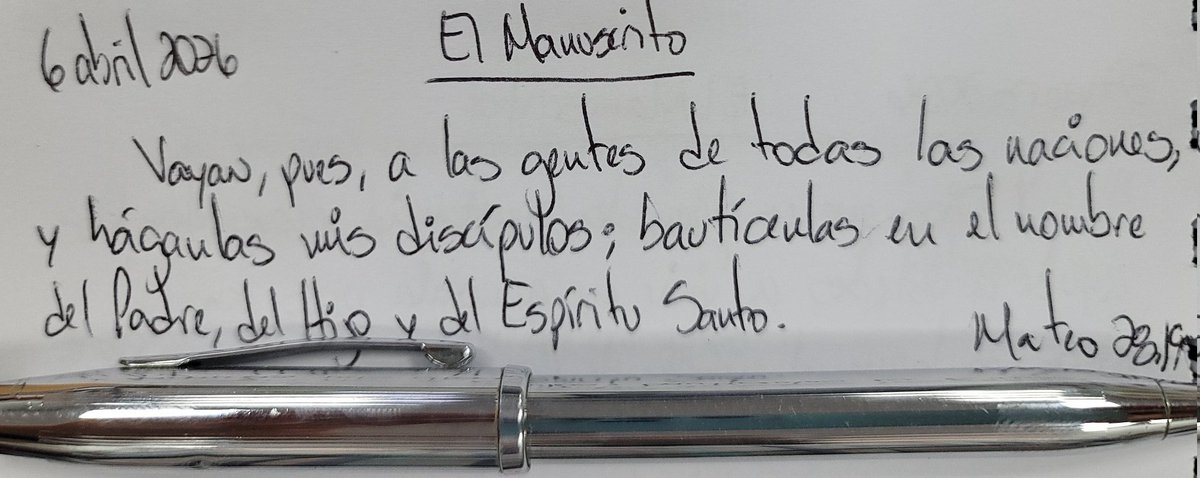 6 abril 2026 El Manuscrito
Vayan, pues, a las gentes de todas las naciones,
y háganlas mis discípulos; bautícenlas en el nombre
del Padre, del Hijo y del Espíritu Santo.
Mateo 28,19